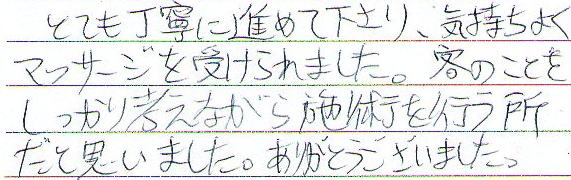 とても丁寧に進めて下さり、気持ちよく
マッサージを受けられました。客のことを
しっかり考えながら施術を行う所
だと思いました。ありがとうございました。